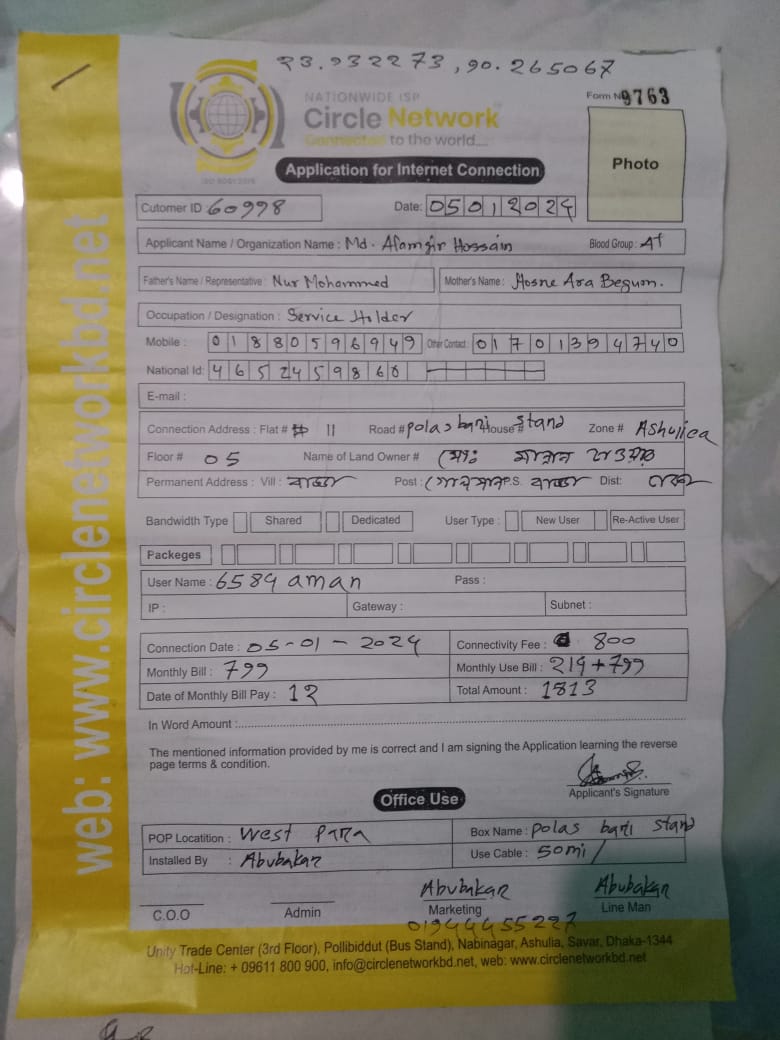 ২3.৯32273, 90.265067
NATIONWIDE ISP
Circle Network
Connected to the world....
Form N 9763
Photo
Application for Internet Connection
Cutomer ID 60998
Date: 05012024
Applicant Name / Organization Name : Md. Alamgir Hossain
Blood Group : A+
Father's Name / Representative : Nur Mohammed
Mother's Name : Hosne Ara Begum.
Occupation / Designation : Service Holder
Mobile : 01880596949
Other Contact : 01701394740
National Id: 4652459860
E-mail :
Connection Address : Flat # 11 Road # polas bari House # stand Zone # Ashuliea
Floor # 05 Name of Land Owner # মোঃ
Permanent Address : Vill : Post : P.S. Dist:
Bandwidth Type Shared Dedicated User Type : New User Re-Active User
Packeges
User Name : 6584 aman Pass :
IP : Gateway : Subnet :
Connection Date : 05-01-2024 Connectivity Fee : 800
Monthly Bill : 799 Monthly Use Bill : 214+799
Date of Monthly Bill Pay : 12 Total Amount : 1813
In Word Amount :
The mentioned information provided by me is correct and I am signing the Application learning the reverse
page terms & condition.
Applicant's Signature
Office Use
POP Locatition : West Para Box Name : polas bari stand
Installed By : Abubakar Use Cable : 50mi
Abubakar Abubakar
C.O.O Admin Marketing Line Man
01944455227
Unity Trade Center (3rd Floor), Pollibiddut (Bus Stand), Nabinagar, Ashulia, Savar, Dhaka-1344
Hot-Line: + 09611 800 900, info@circlenetworkbd.net, web: www.circlenetworkbd.net
web: www.circlenetworkbd.net